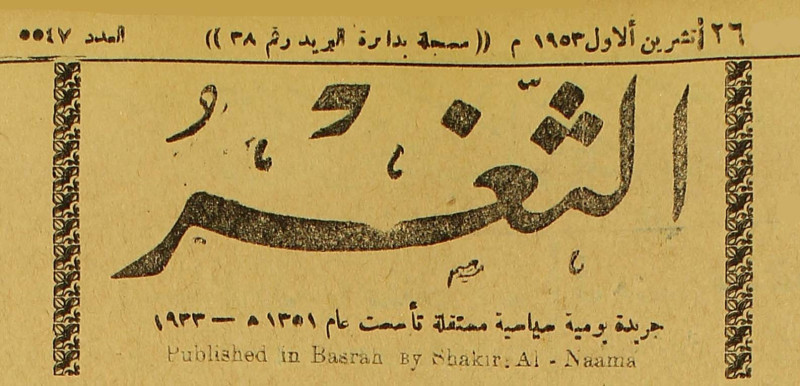 ٢٦ تشرين ألاول ١٩٥٣ م ((مسجلة بدائرة البريد رقم ٣٨)) العدد ٥٥٤٧
الثَّغْرُ
جريدة يومية سياسية مستقلة تأسست عام ١٣٥١ ه — ١٩٣٣
Published in Basrah By Shakir. Al - Naama